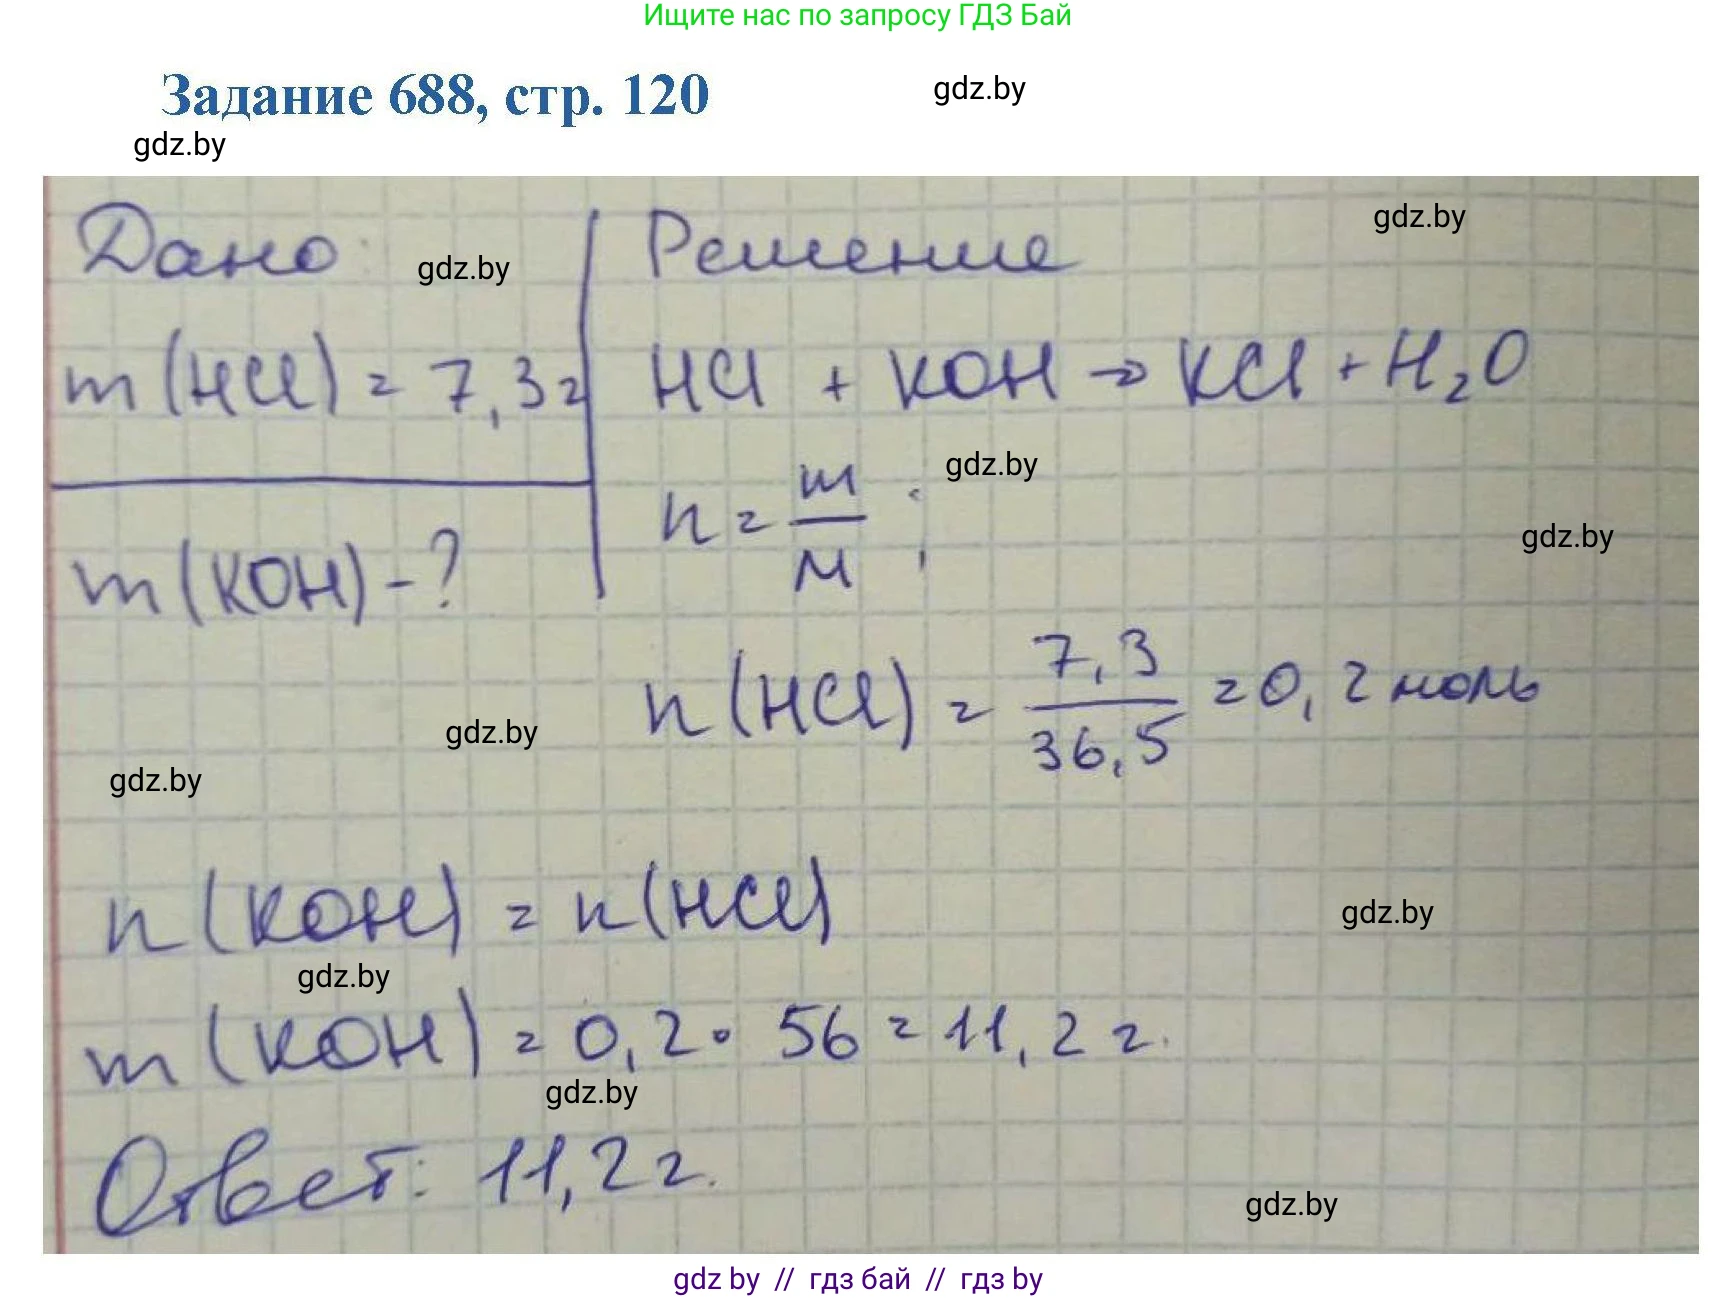 Ищите нас по запросу ГДЗ Бай
Задание 688, стр. 120
gdz.by
gdz.by
Дано:
gdz.by
m(HCl) = 7,3г
m(KOH) - ?
Решение
gdz.by
HCl + KOH → KCl + H₂O
n = m/M ;
gdz.by
gdz.by
n(HCl) = 7,3/36,5 = 0,2 моль
gdz.by
gdz.by
n(KOH) = n(HCl)
gdz.by
gdz.by
m(KOH) = 0,2 · 56 = 11,2 г.
gdz.by
Ответ: 11,2 г.
gdz.by
gdz by // гдз бай // гдз by